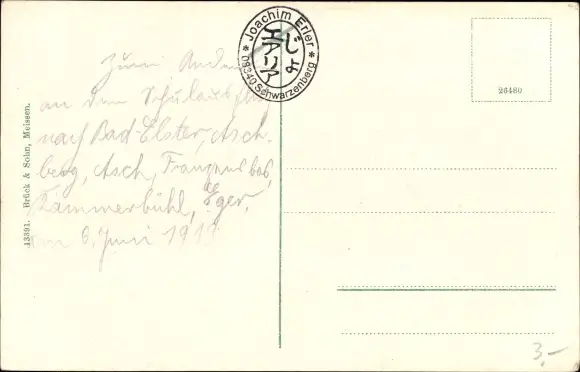 Joachim Erler
じょ
エアリア
* 08340 Schwarzenberg *
26480
13391. Brück & Sohn, Meissen.
Zum Anden
an den Schulausflug
nach Bad-Elster, Asch-
berg, Asch, Franzensbad,
Kammerbühl, Eger.
am 6. Juni 191
3,-